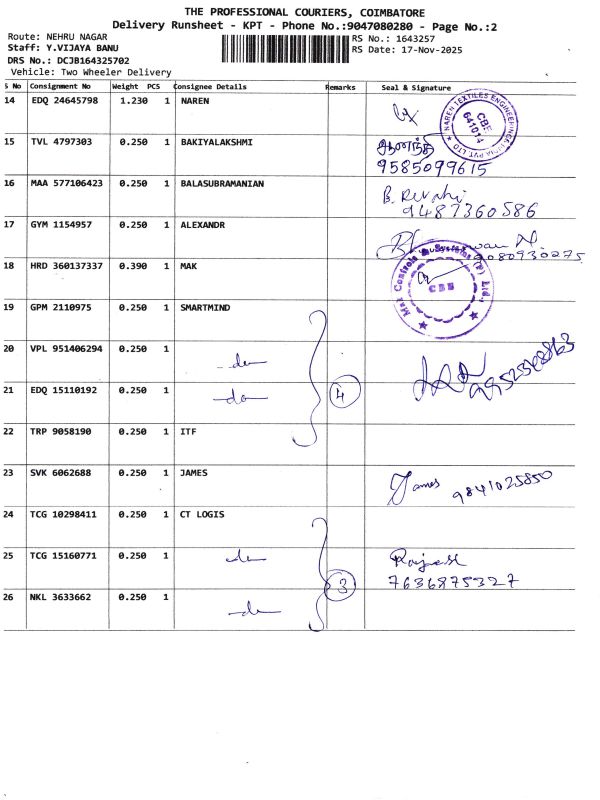 THE PROFESSIONAL COURIERS, COIMBATORE
Delivery Runsheet - KPT - Phone No.:9047080280 - Page No.:2
Route: NEHRU NAGAR
Staff: Y.VIJAYA BANU
DRS No.: DCJB164325702
Vehicle: Two Wheeler Delivery
RS No.: 1643257
RS Date: 17-Nov-2025
S No Consignment No Weight PCS Consignee Details Remarks Seal & Signature
14 EDQ 24645798 1.230 1 NAREN
NAREN TEXTILES ENGINEERING INDIA PVT. LTD
CBE
641014
15 TVL 4797303 0.250 1 BAKIYALAKSHMI
9585099615
16 MAA 577106423 0.250 1 BALASUBRAMANIAN B. Revathi
9487360586
17 GYM 1154957 0.250 1 ALEXANDR
9080930275
18 HRD 360137337 0.390 1 MAK
Mak Controls & Systems (P) Ltd.,
CBE
19 GPM 2110975 0.250 1 SMARTMIND
20 VPL 951406294 0.250 1 -do-
21 EDQ 15110192 0.250 1 -do- 4
22 TRP 9058190 0.250 1 ITF
23 SVK 6062688 0.250 1 JAMES James 9841025850
24 TCG 10298411 0.250 1 CT LOGIS
25 TCG 15160771 0.250 1 -do- Rajesh
7636875327
26 NKL 3633662 0.250 1 -do- 3